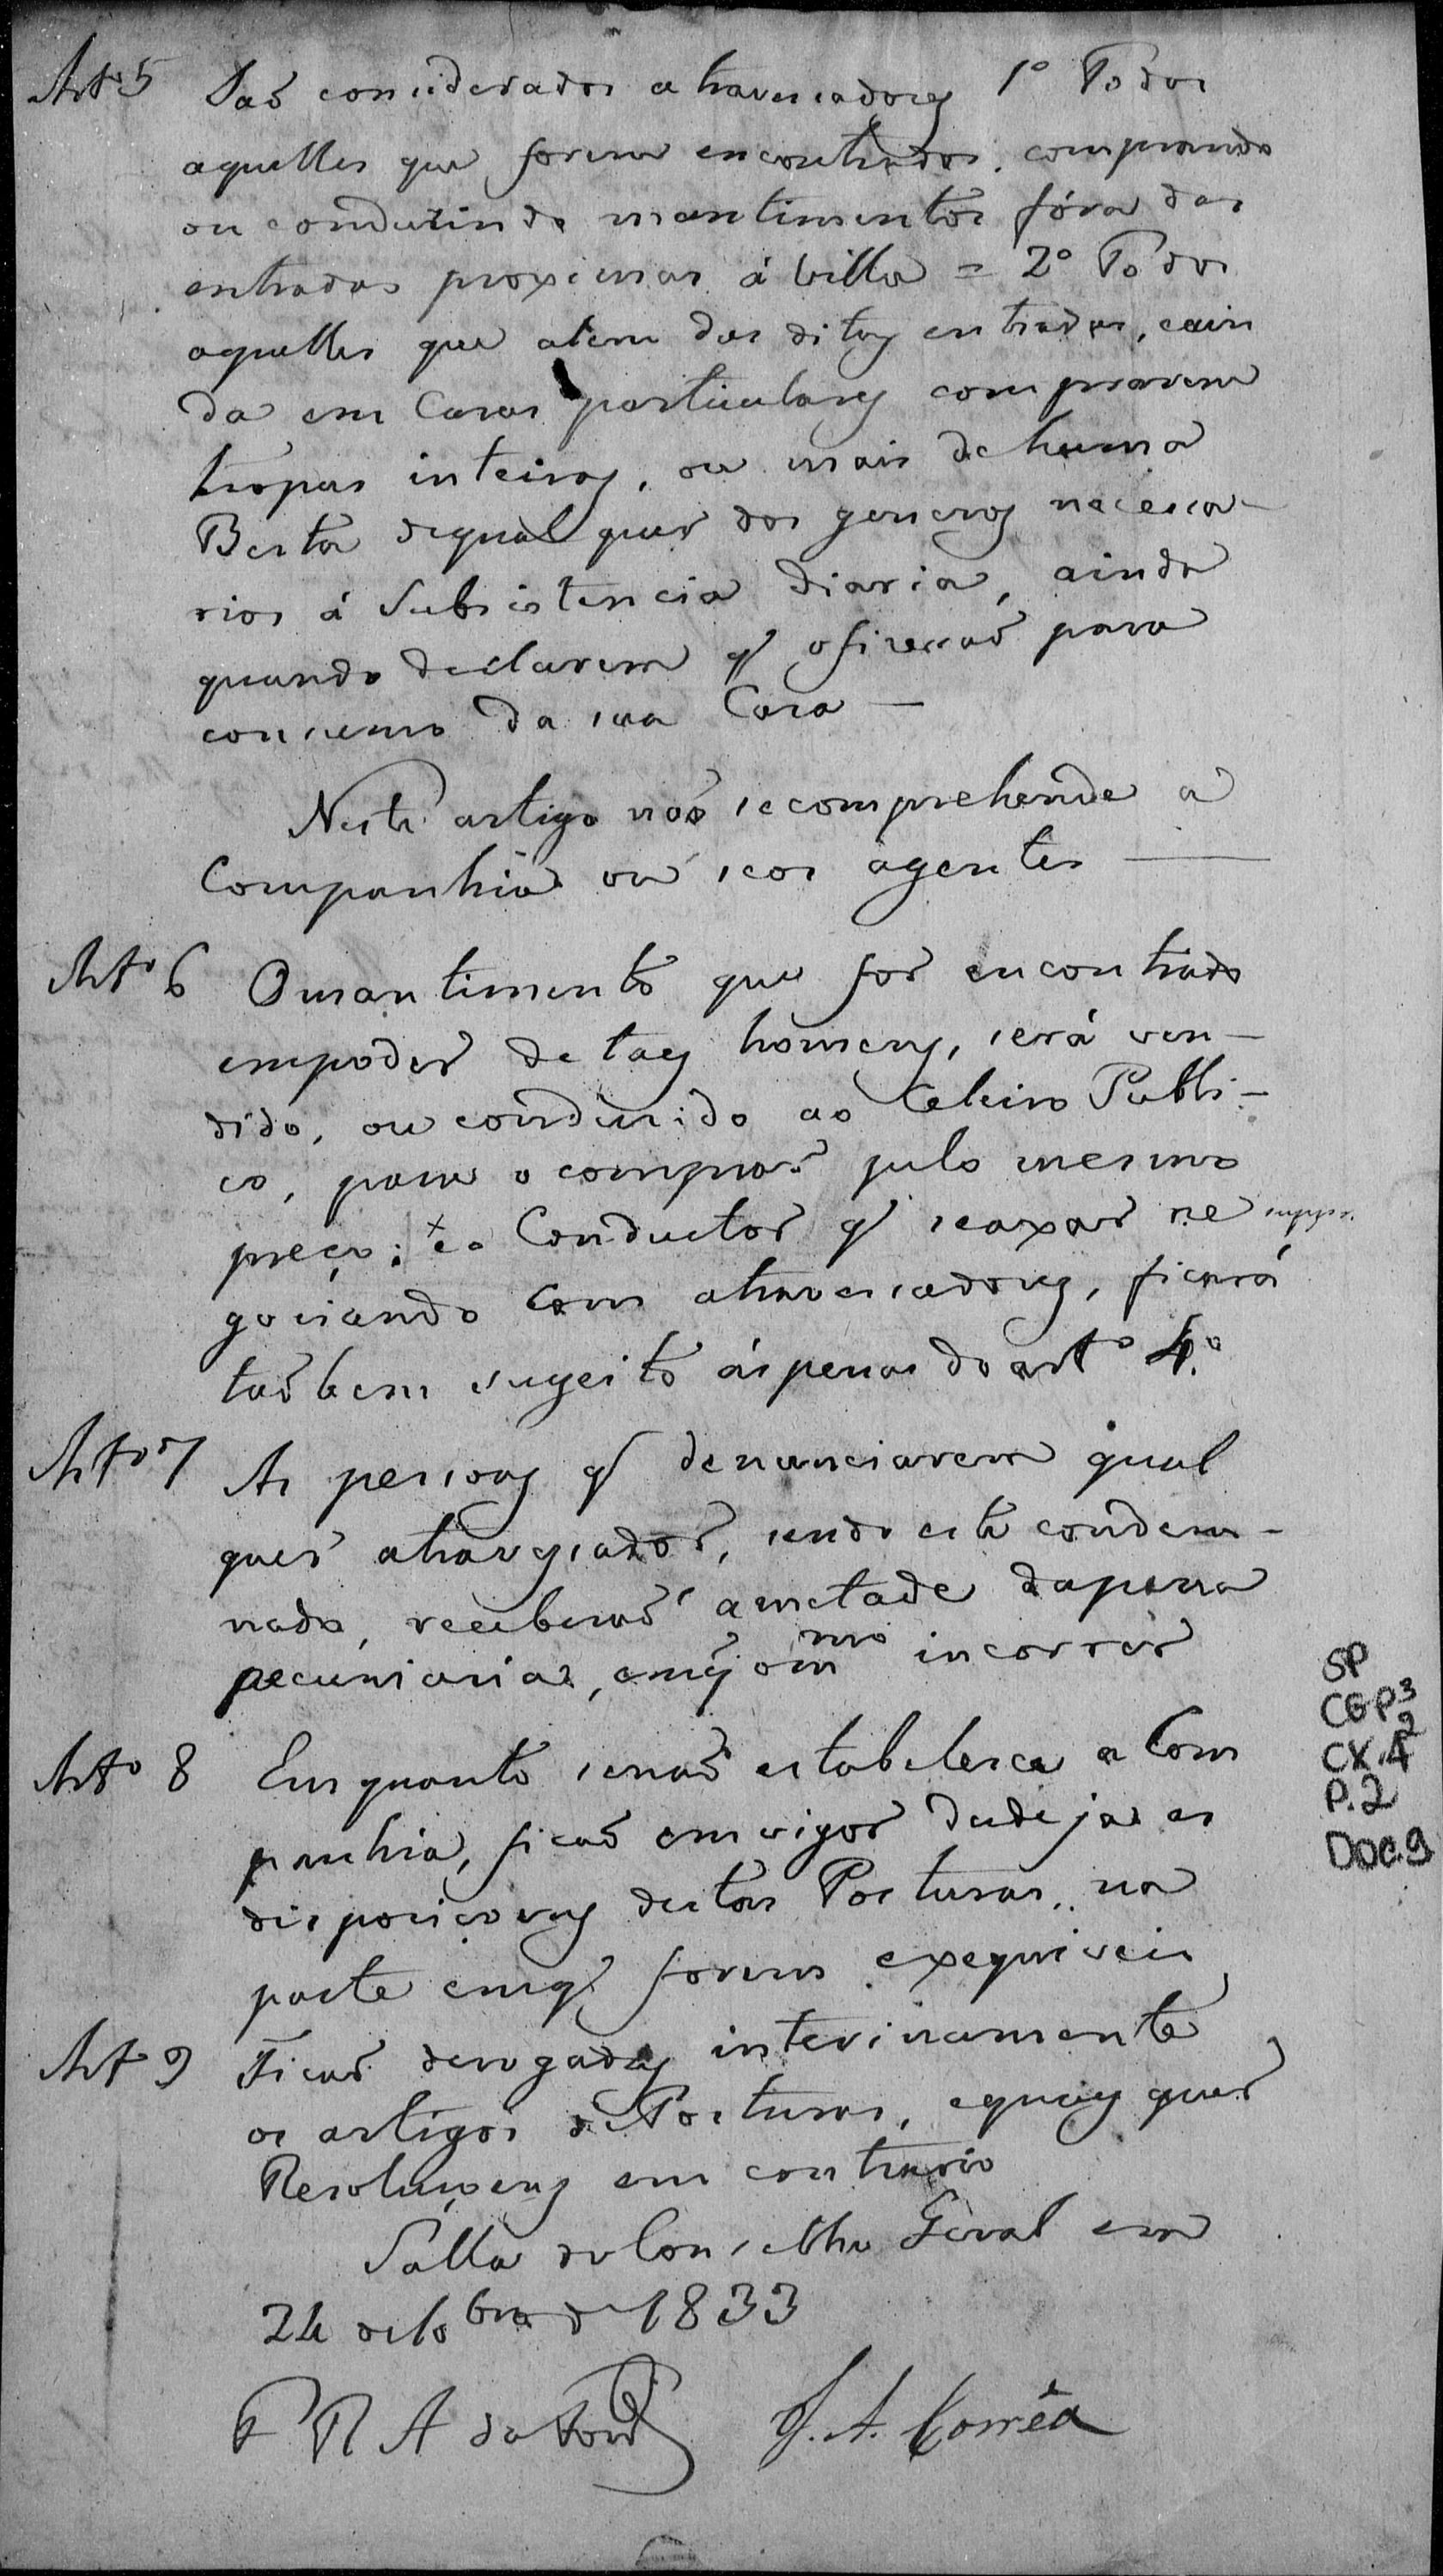 Artº 5 Saõ considerados atravessadores 1º Todos
aquelles que forem encontrados comprando
ou conduzindo mantimentos fóra das
entradas proximas á Villa = 2º Todos
aquelles que alem das ditas entradas, ain
da em Casas particulares comprarem
tropas inteiras, ou mais de huma
Besta de qual quer dos generos necessa-
rios á Subsistencia diaria, ainda
quando declarem q' o fizeraõ para
consumo da sua Casa —
Neste artigo naõ se comprehende a
Companhia ou seos agentes —
Artº 6 O mantimento que for encontrado
em poder de taes homens, será ven-
dido, ou conduzido ao Celeiro Publi-
co, para o comprar pelo mesmo
preço; e o Conductor q' se axar ne
gociando com atravessadores, ficará
taõbem sugeito ás penas do artº 4.º
Artº 7 As pessoas q' denunciarem qual
quer atravessador, sendo este condem-
nado, receberaõ ametade da pena
pecuniaria, em q' o mmo incorrer
Artº 8 Em quanto se naõ estabelesca a Com
panhia, ficaõ em vigor desde ja as
disposiçoens destas Posturas, na
parte em q' forem exequiveis
Art 9 Ficaõ derogados interinamente
os artigos de Posturas, e quaes quer
Resoluçoens em contrario
Salla do Conselho Geral em
24 de 10bro de 1833
J. A. Corrêa
SP
CGP3
2
CX.4
P.2
DOC.9